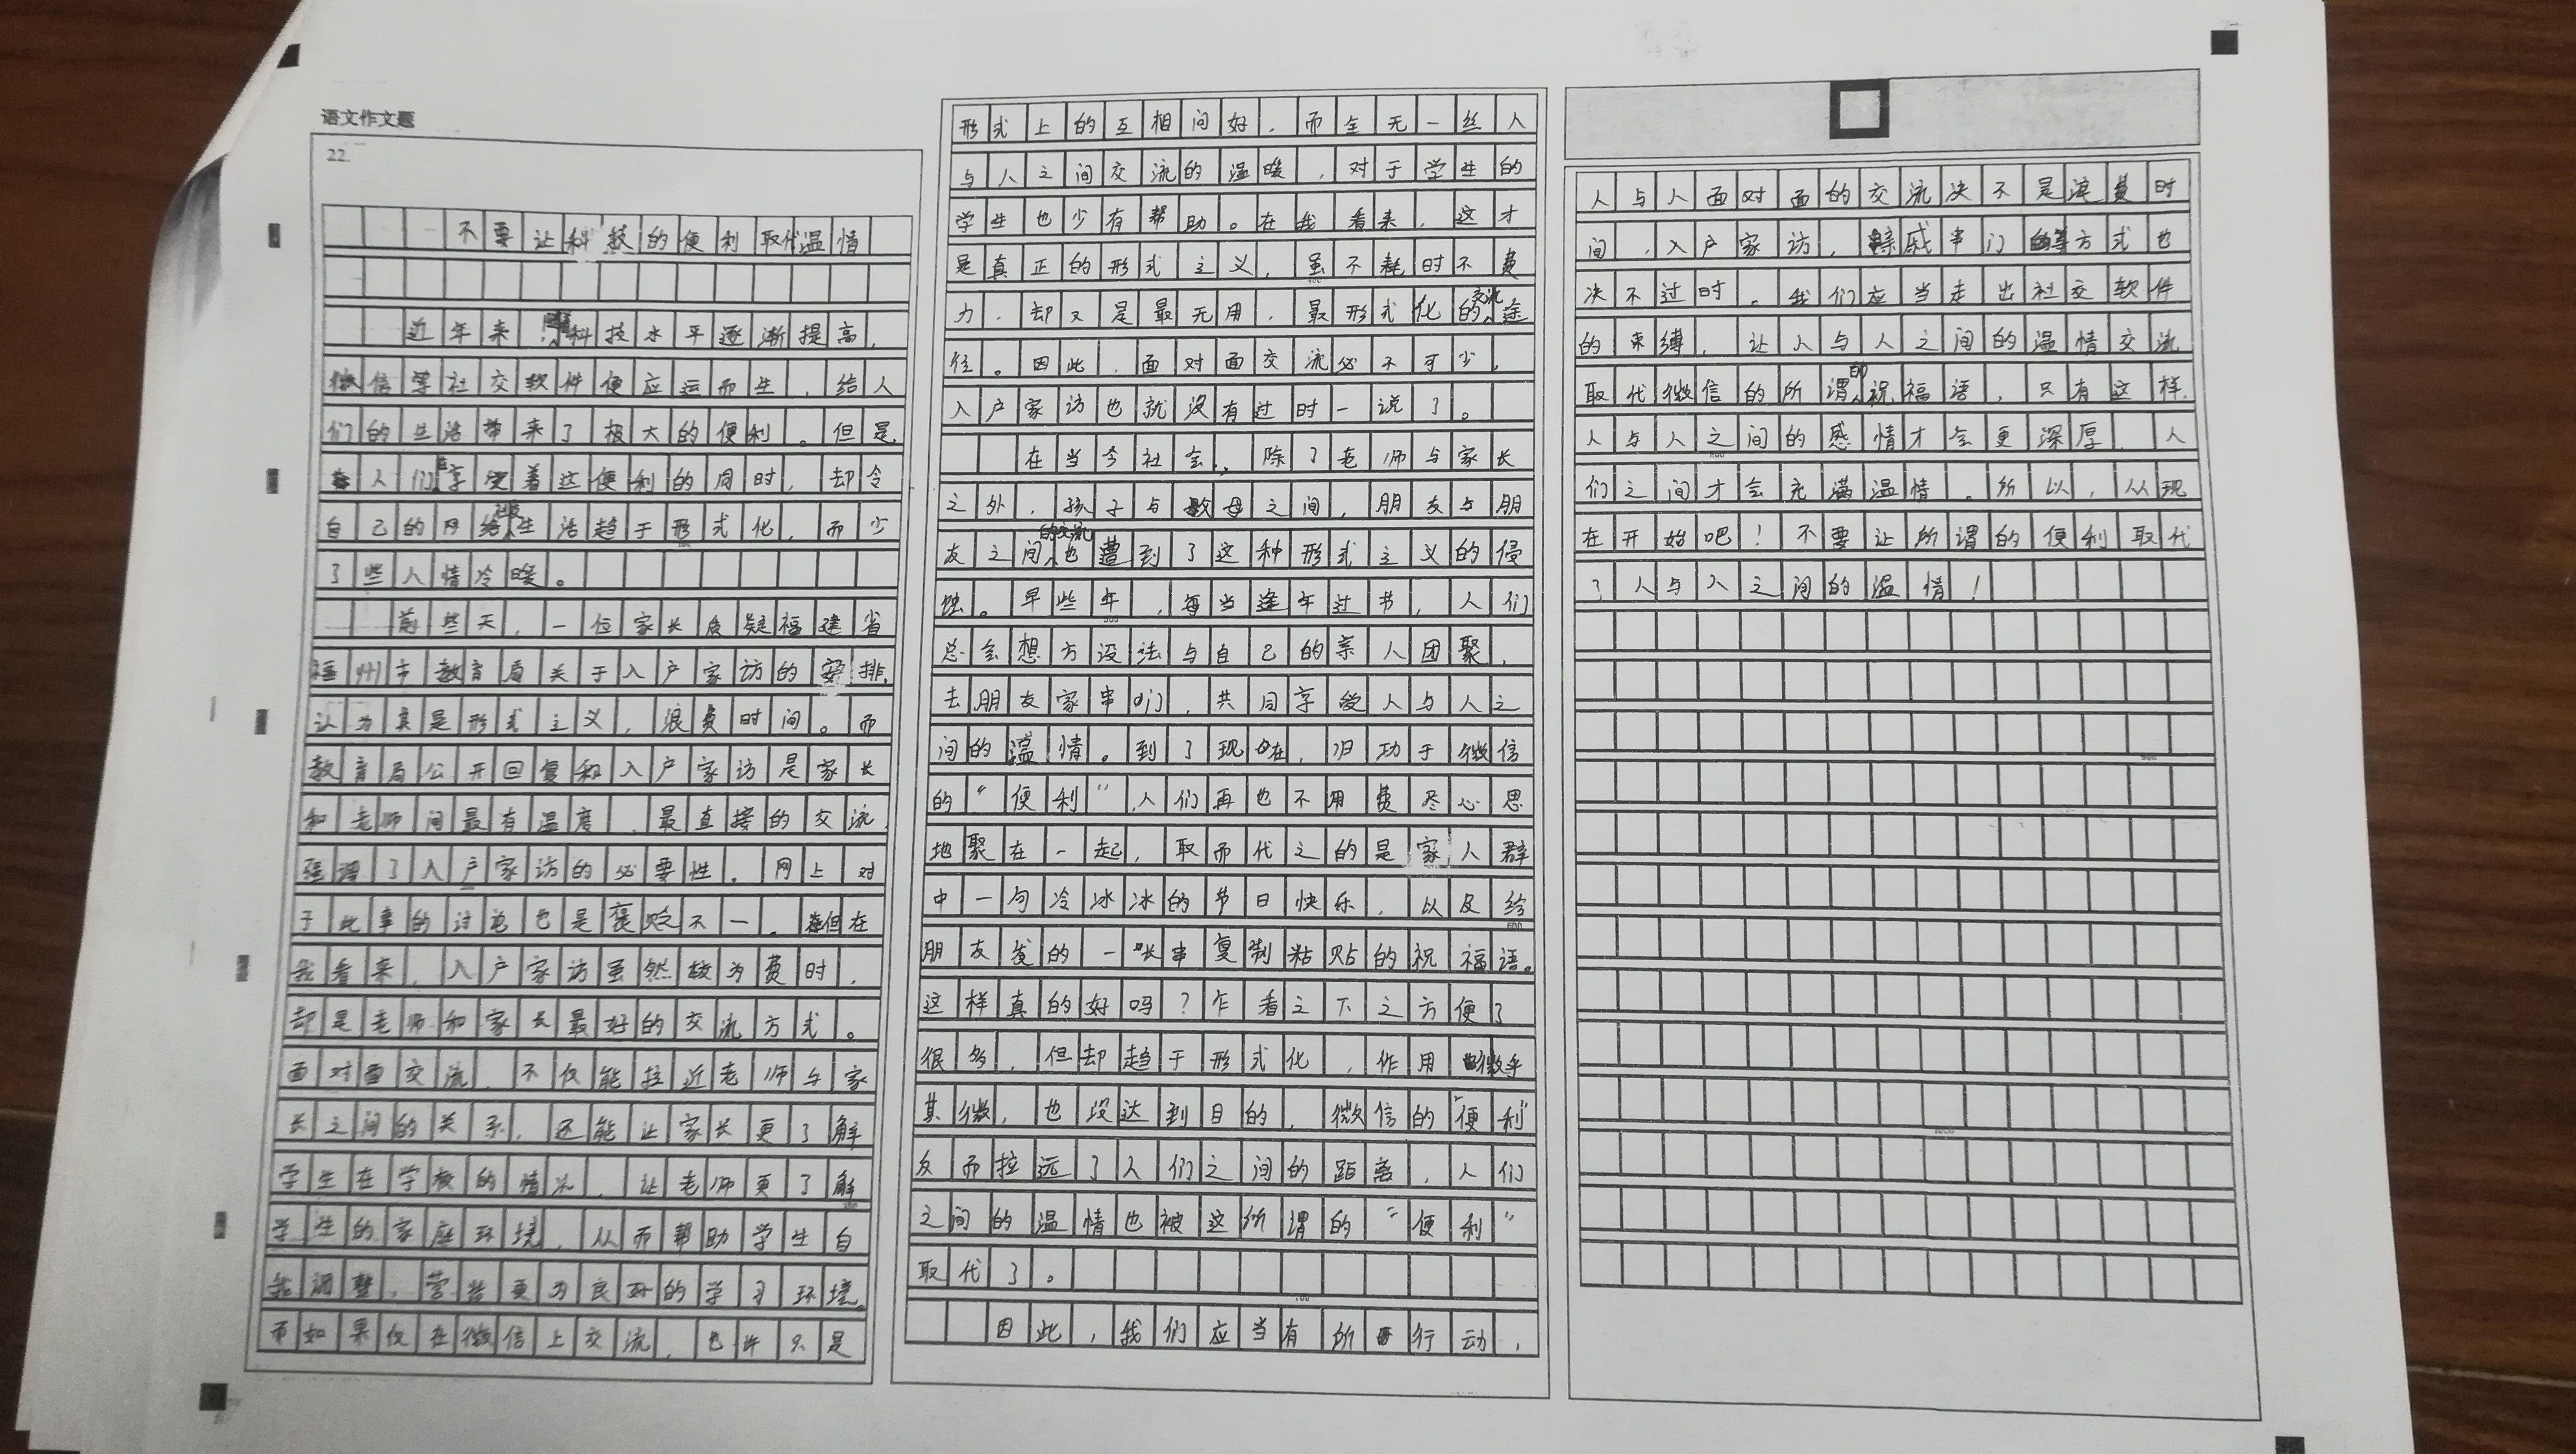 语文作文题
22.
不要让科技的便利取代温情
近年来，科技水平逐渐提高，
微信等社交软件便应运而生，给人
们的生活带来了极大的便利。但是
人们在享受着这便利的同时，却令
自己的网络生活趋于形式化，而少
了些人情冷暖。
前些天，一位家长质疑福建省
福州市教育局关于入户家访的安排，
认为其是形式主义，浪费时间。而
教育局公开回复和入户家访是家长
和老师间最有温度、最直接的交流，
强调了入户家访的必要性。网上对
于此事的讨论也是褒贬不一。但在
我看来，入户家访虽然较为费时，
却是老师和家长最好的交流方式。
面对面交流，不仅能拉近老师与家
长之间的关系，还能让家长更了解
学生在学校的情况，让老师更了解
学生的家庭环境，从而帮助学生自
我调整，营造更为良好的学习环境。
而如果仅在微信上交流，也许只是
形式上的互相问好，而全无一丝人
与人之间交流的温暖，对于学生的
学生也少有帮助。在我看来，这才
是真正的形式主义，虽不耗时不费
力，却又是最无用，最形式化的交流途
径。因此，面对面交流必不可少，
入户家访也就没有过时一说了。
在当今社会，除了老师与家长
之外，孩子与父母之间，朋友与朋
友之间的交流也遭到了这种形式主义的侵
蚀。早些年，每当逢年过节，人们
总会想方设法与自己的亲人团聚，
去朋友家串门，共同享受人与人之
间的温情。到了现在，归功于微信
的“便利”，人们再也不用费尽心思
地聚在一起，取而代之的是家人群
中一句冷冰冰的节日快乐，以及给
朋友发的一长串复制粘贴的祝福语。
这样真的好吗？乍看之下之方便了
很多，但却趋于形式化，作用微乎
其微，也没达到目的，微信的“便利”
反而拉远了人们之间的距离，人们
之间的温情也被这所谓的“便利”
取代了。
因此，我们应当有所行动，
人与人面对面的交流决不是浪费时
间，入户家访，亲戚串门等方式也
决不过时。我们应当走出社交软件
的束缚，让人与人之间的温情交流
取代微信的所谓的祝福语，只有这样，
人与人之间的感情才会更深厚，人
们之间才会充满温情。所以，从现
在开始吧！不要让所谓的便利取代
了人与人之间的温情！